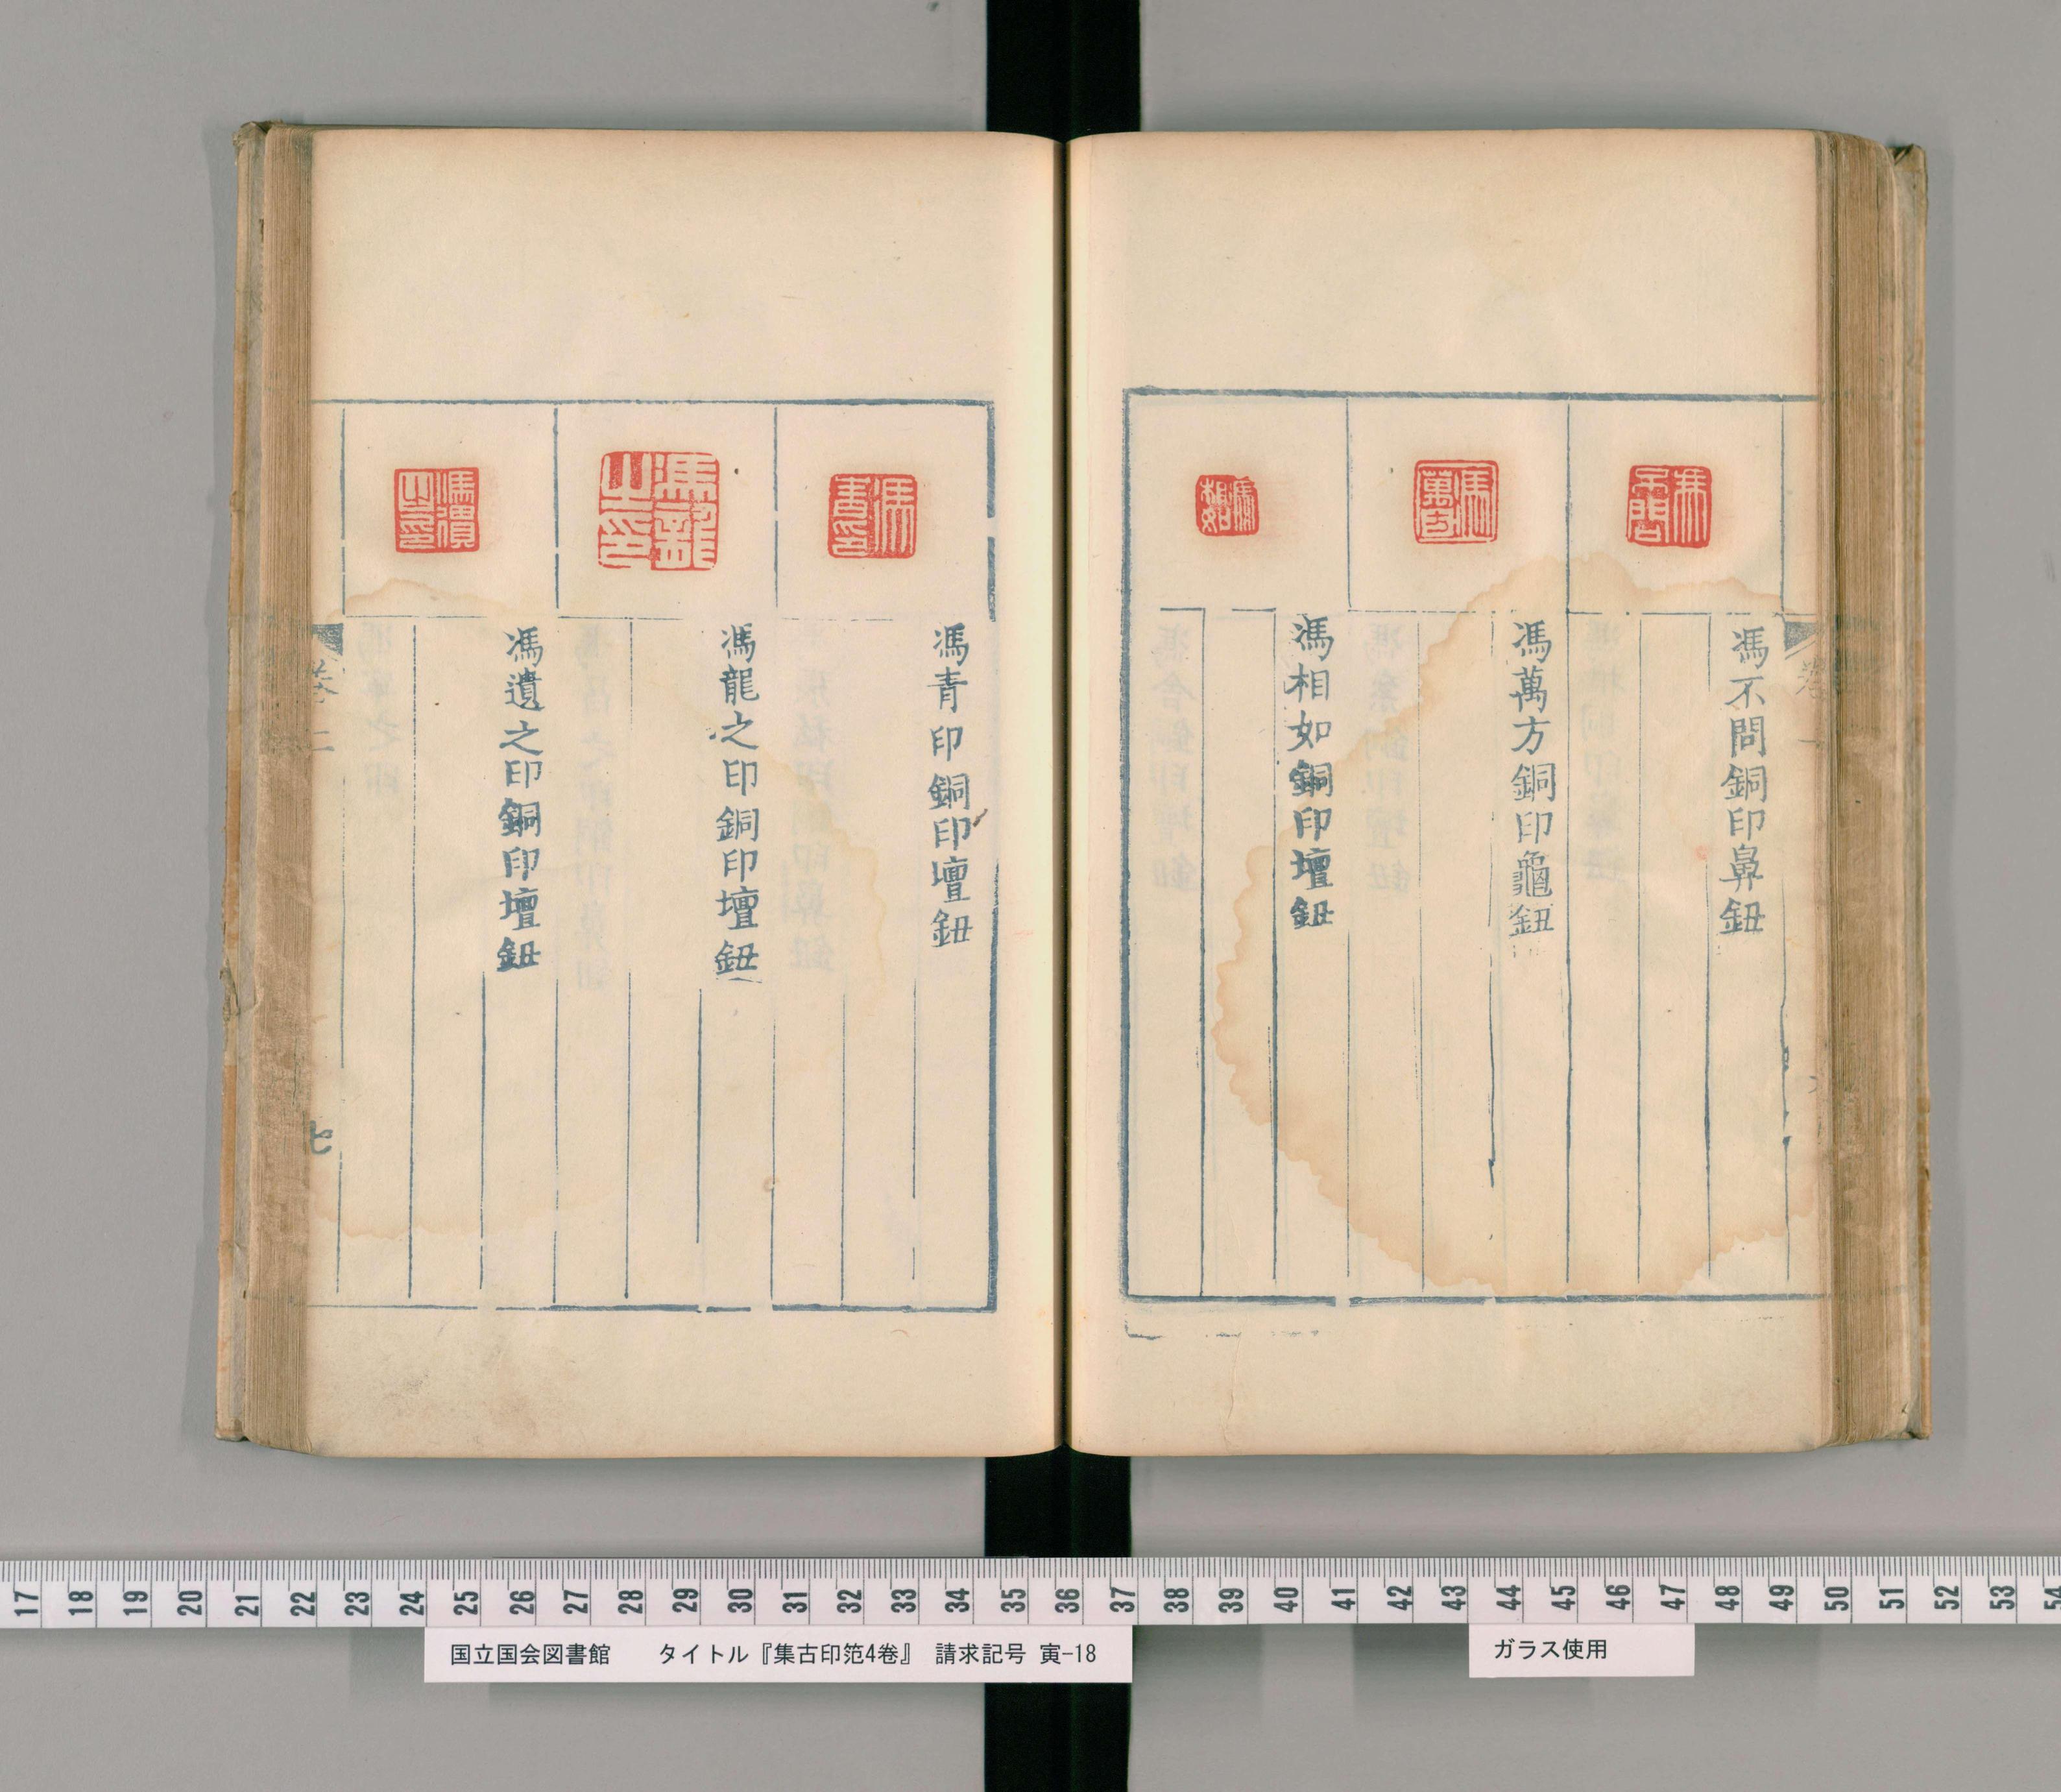 馮不問銅印鼻鈕
馮萬方銅印龜鈕
馮相如銅印壇鈕
馮青印銅印壇鈕
馮龍之印銅印壇鈕
馮遺之印銅印壇鈕
卷二
七
17 18 19 20 21 22 23 24 25 26 27 28 29 30 31 32 33 34 35 36 37 38 39 40 41 42 43 44 45 46 47 48 49 50 51 52 53 54
国立国会図書館 タイトル『集古印笵4巻』 請求記号 寅-18
ガラス使用